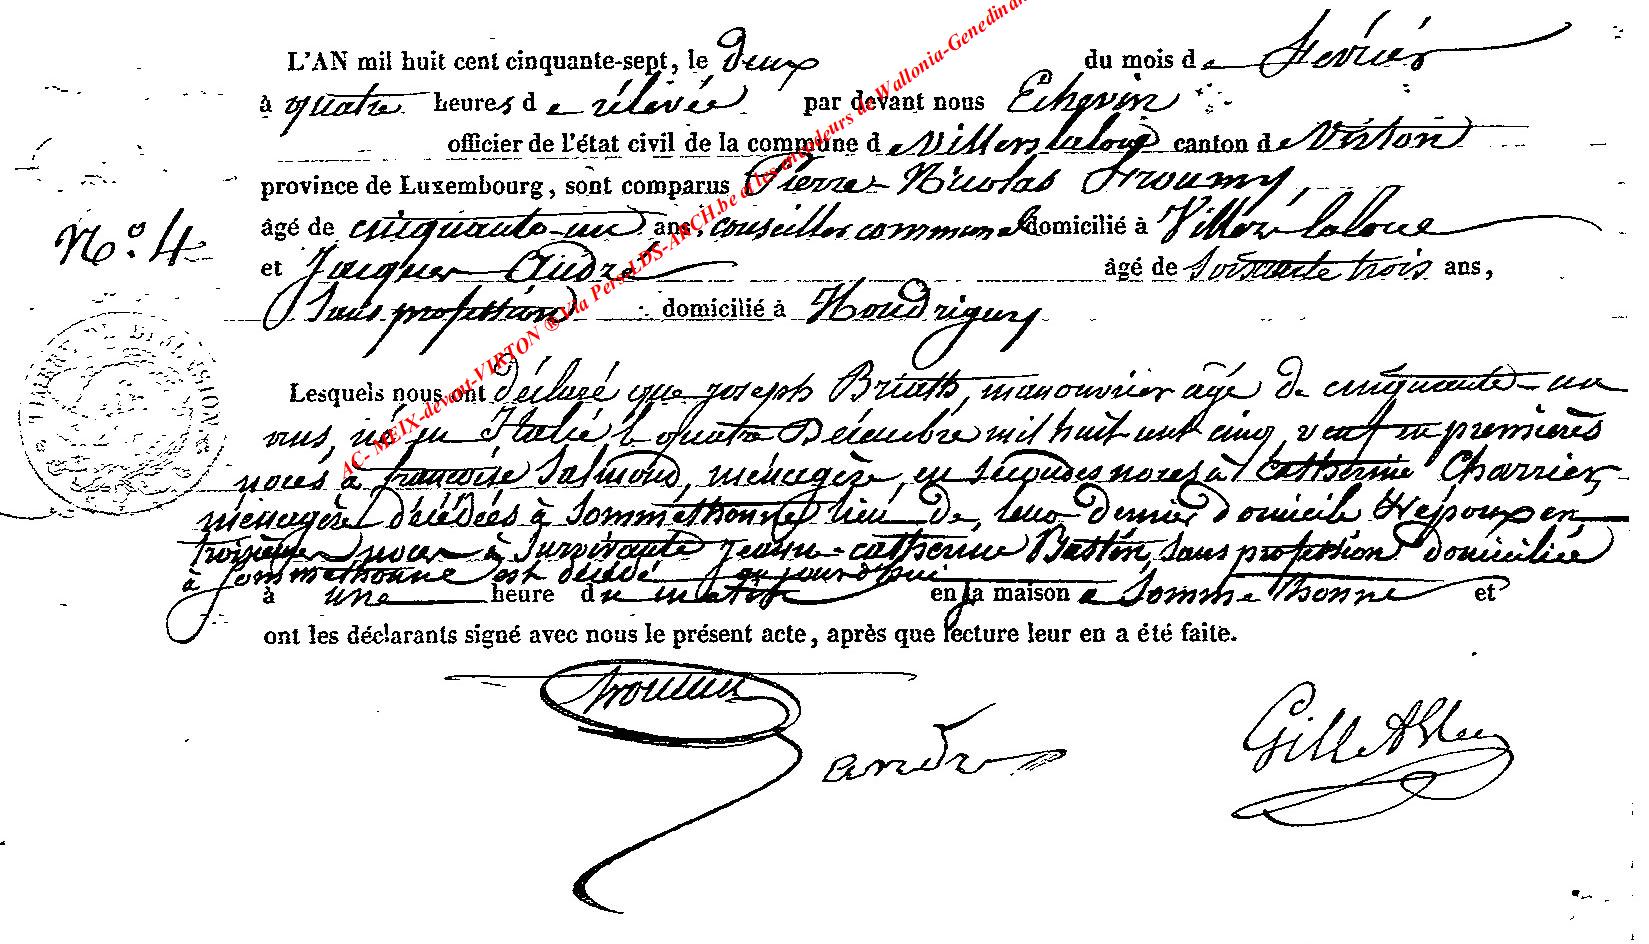 L'AN mil huit cent cinquante-sept, le deux du mois de Fevrier
à quatre heures de rélevée par devant nous Echevin
officier de l'état civil de la commune de Villers laloue canton de Virton
province de Luxembourg, sont comparus Pierre-Nicolas Froumy,
âgé de cinquante-un ans, conseiller communal domicilié à Villers laloue
N.º 4
et Jacques André âgé de Soixante trois ans,
Sans profession domicilié à Houdrigny
Lesquels nous ont déclaré que joseph manouvrier âgé de cinquante-un
ans, né en Italie le quatre Décembre mil huit cent cinq, veuf en premières
noces à françoise Salmond, ménagère, en secondes noces à catherine Charrier,
ménagère décédées à Sommethonne lieu de leur dernier domicile épouse en
troisième noces à Survivante jeanne-catherine Bastin, Sans profession domiciliée
à Sommethonne est décédé aujourd'hui
à une heure du matin en sa maison a Sommethonne et
ont les déclarants signé avec nous le présent acte, après que lecture leur en a été faite.
andré
AC- MEIX-devant-VIRTON ® Via Pers-LDS-ARCH.be et les de Wallonia-Genedinan